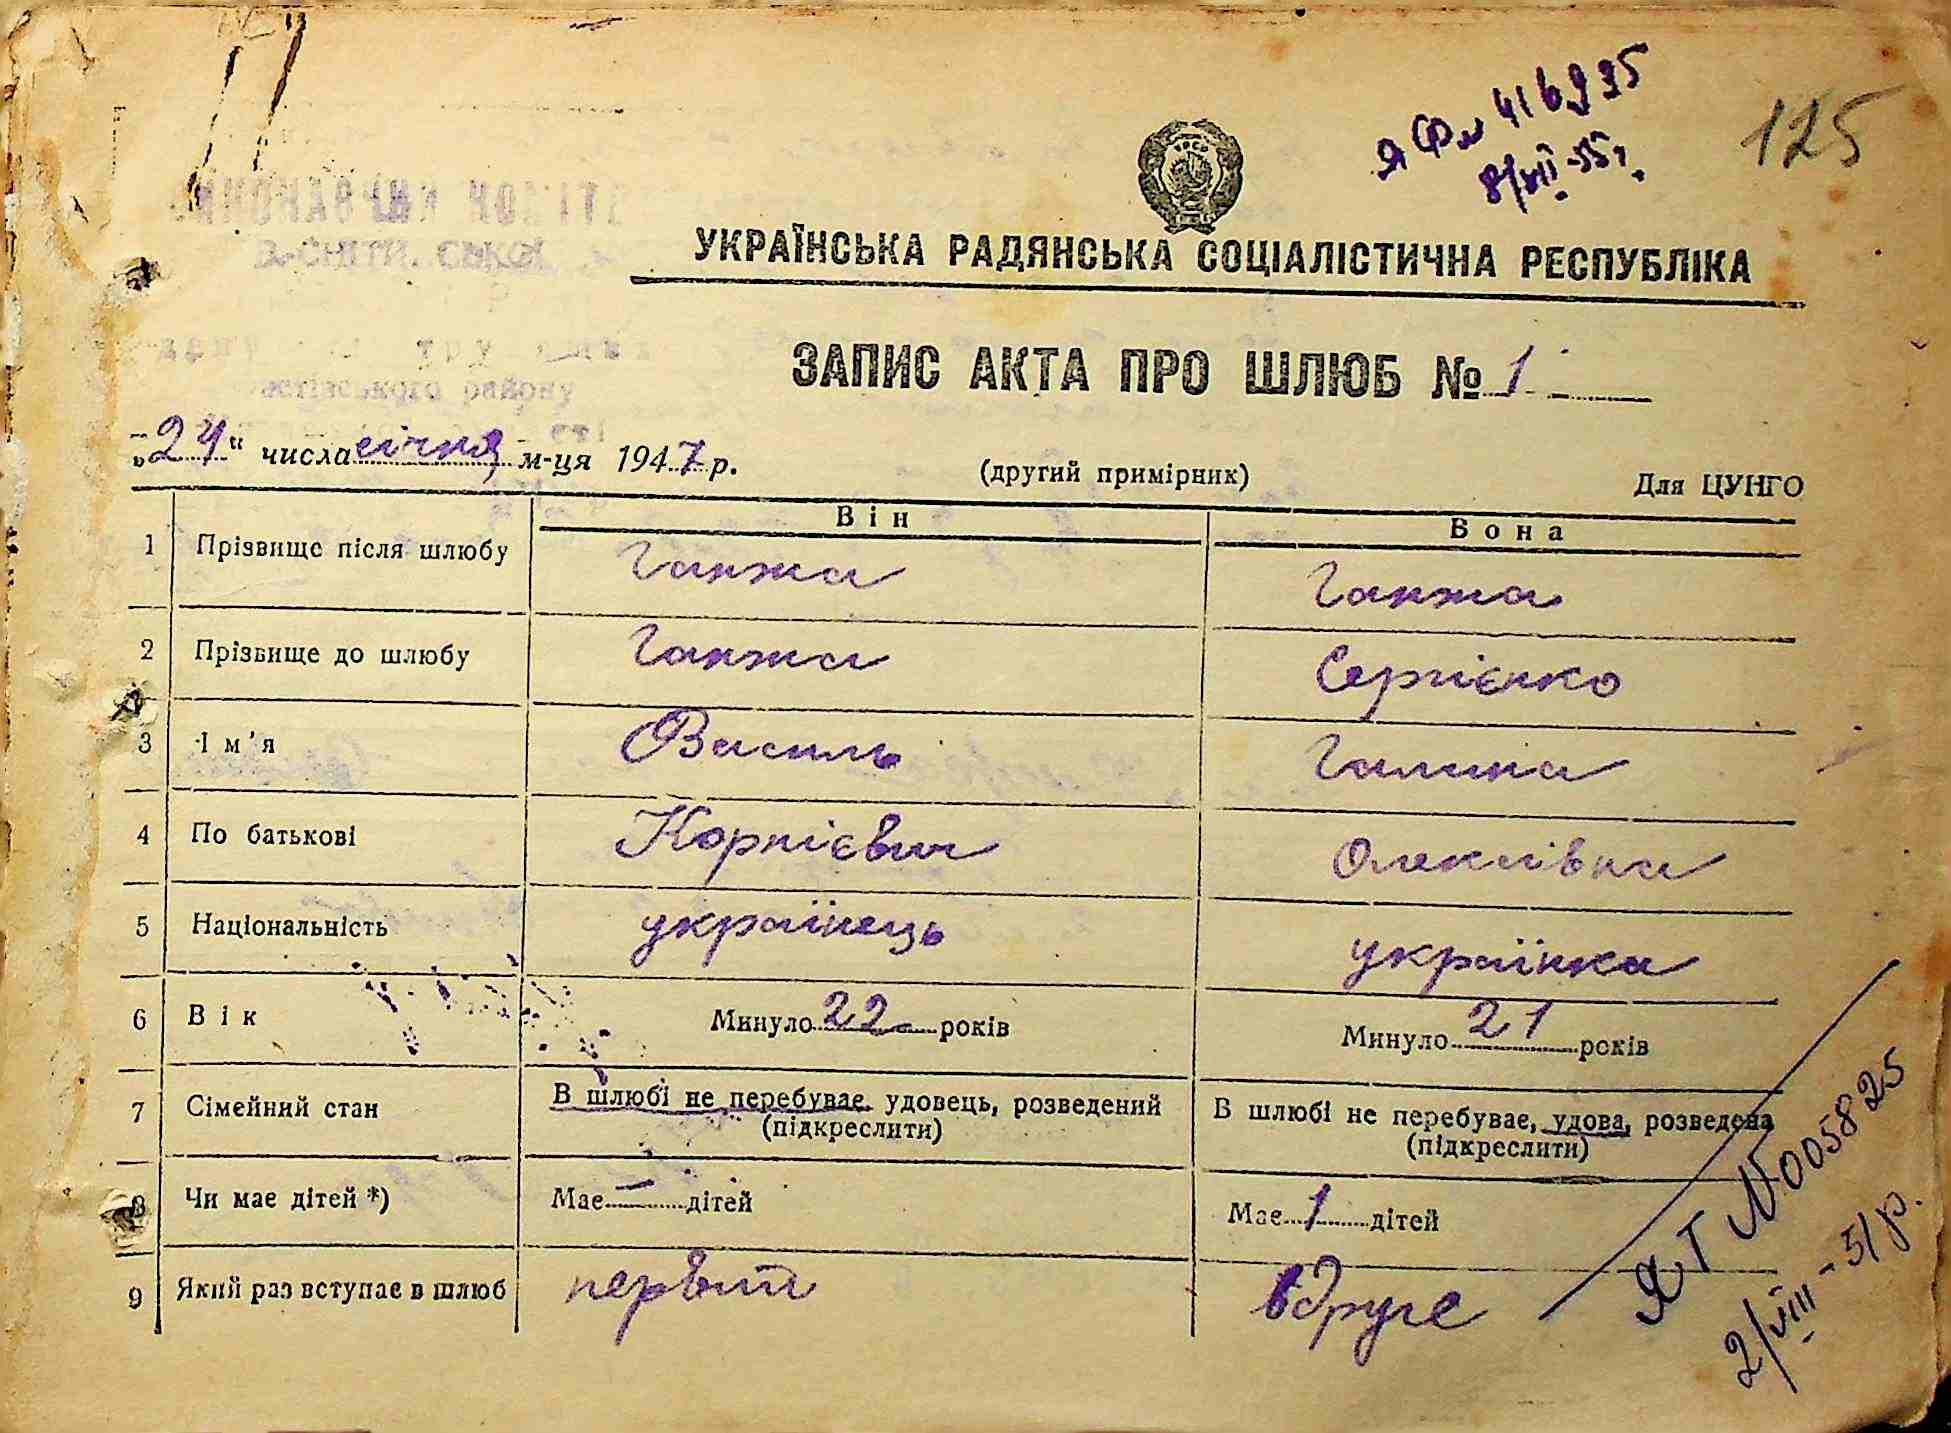 ЯФ № 416935
8/VII-55 г.
125
УКРАЇНСЬКА РАДЯНСЬКА СОЦІАЛІСТИЧНА РЕСПУБЛІКА
ЗАПИС АКТА ПРО ШЛЮБ № 1
„24“ числа січня м-ця 1947 р. (другий примірник) Для ЦУНГО
Він Вона
1 Прізвище після шлюбу Ганжа Ганжа
2 Прізвище до шлюбу Ганжа Сергієнко
3 Ім'я Василь Галина
4 По батькові Корнієвич Олексіївна
5 Національність українець українка
6 Вік Минуло 22 років Минуло 21 років
7 Сімейний стан В шлюбі не перебуває, удовець, розведений В шлюбі не перебуває, удова, розведена
(підкреслити) (підкреслити)
8 Чи має дітей *) Має — дітей Має 1 дітей
9 Який раз вступає в шлюб первый вдруге
ЯТ № 005825
2/VIII-51 р.
району